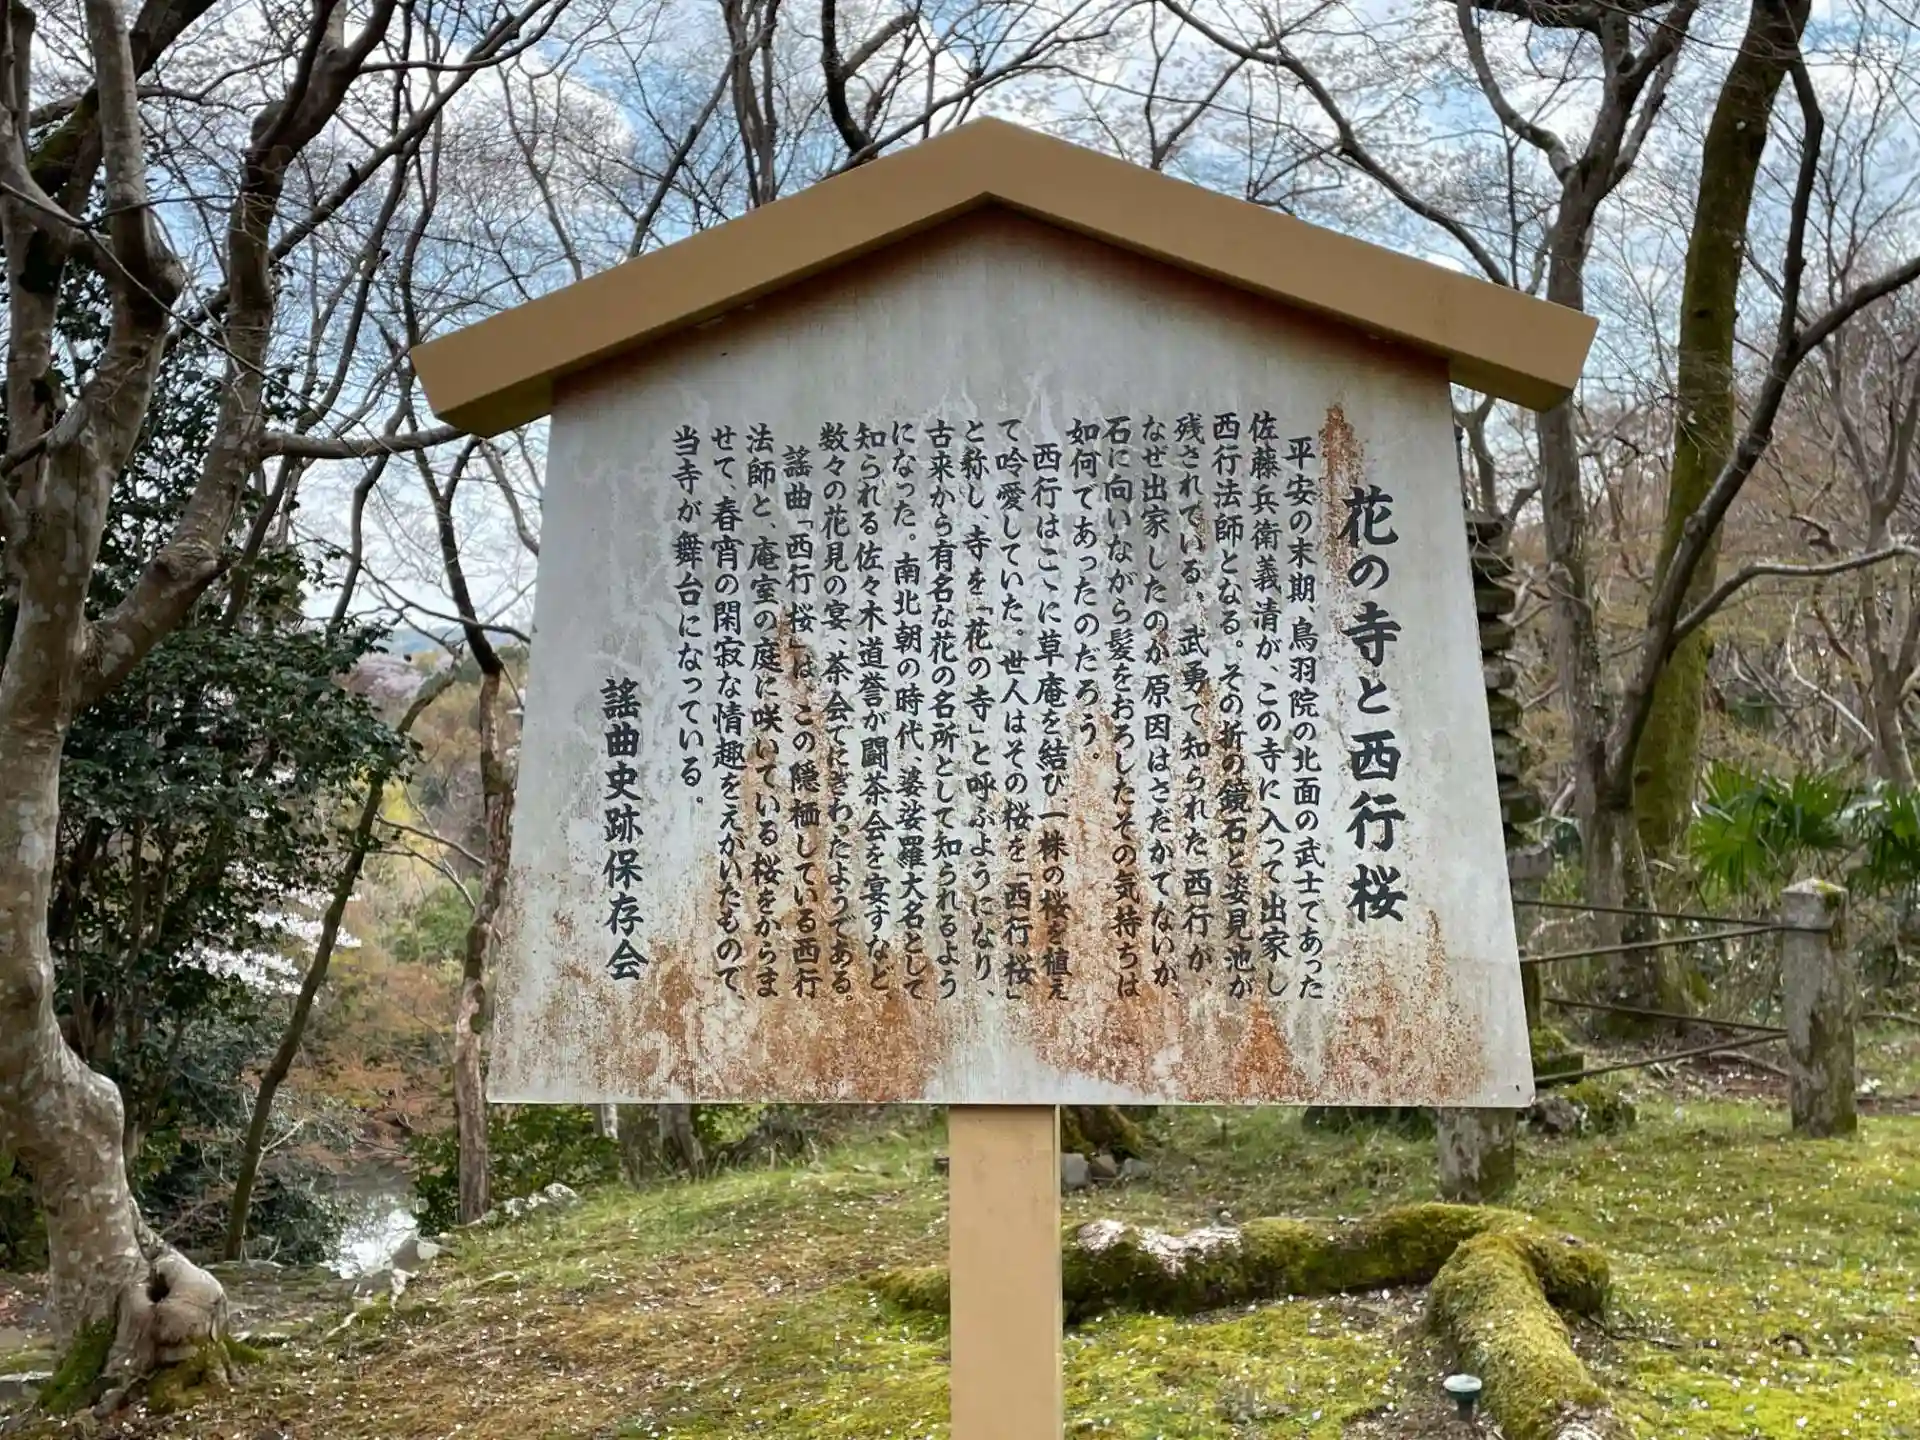 花の寺と西行桜
平安の末期、鳥羽院の北面の武士であった
佐藤兵衛義清が、この寺に入って出家し
西行法師となる。その折の鏡石と姿見池が
残されている。武勇で知られた西行が、
なぜ出家したのか原因はさだかでないが、
石に向いながら髪をおろしたその気持ちは
如何であったのだろう。
西行はこゝに草庵を結び、一株の桜を植え
て吟愛していた。世人はその桜を「西行桜」
と称し、寺を「花の寺」と呼ぶようになり、
古来から有名な花の名所として知られるよう
になった。南北朝の時代、婆娑羅大名として
知られる佐々木道誉が闘茶会を宴すなど
数々の花見の宴、茶会でにぎわったようである。
謡曲「西行桜」は、この隠栖している西行
法師と、庵室の庭に咲いている桜をからま
せて、春宵の閑寂な情趣をえがいたもので、
当寺が舞台になっている。
謡曲史跡保存会